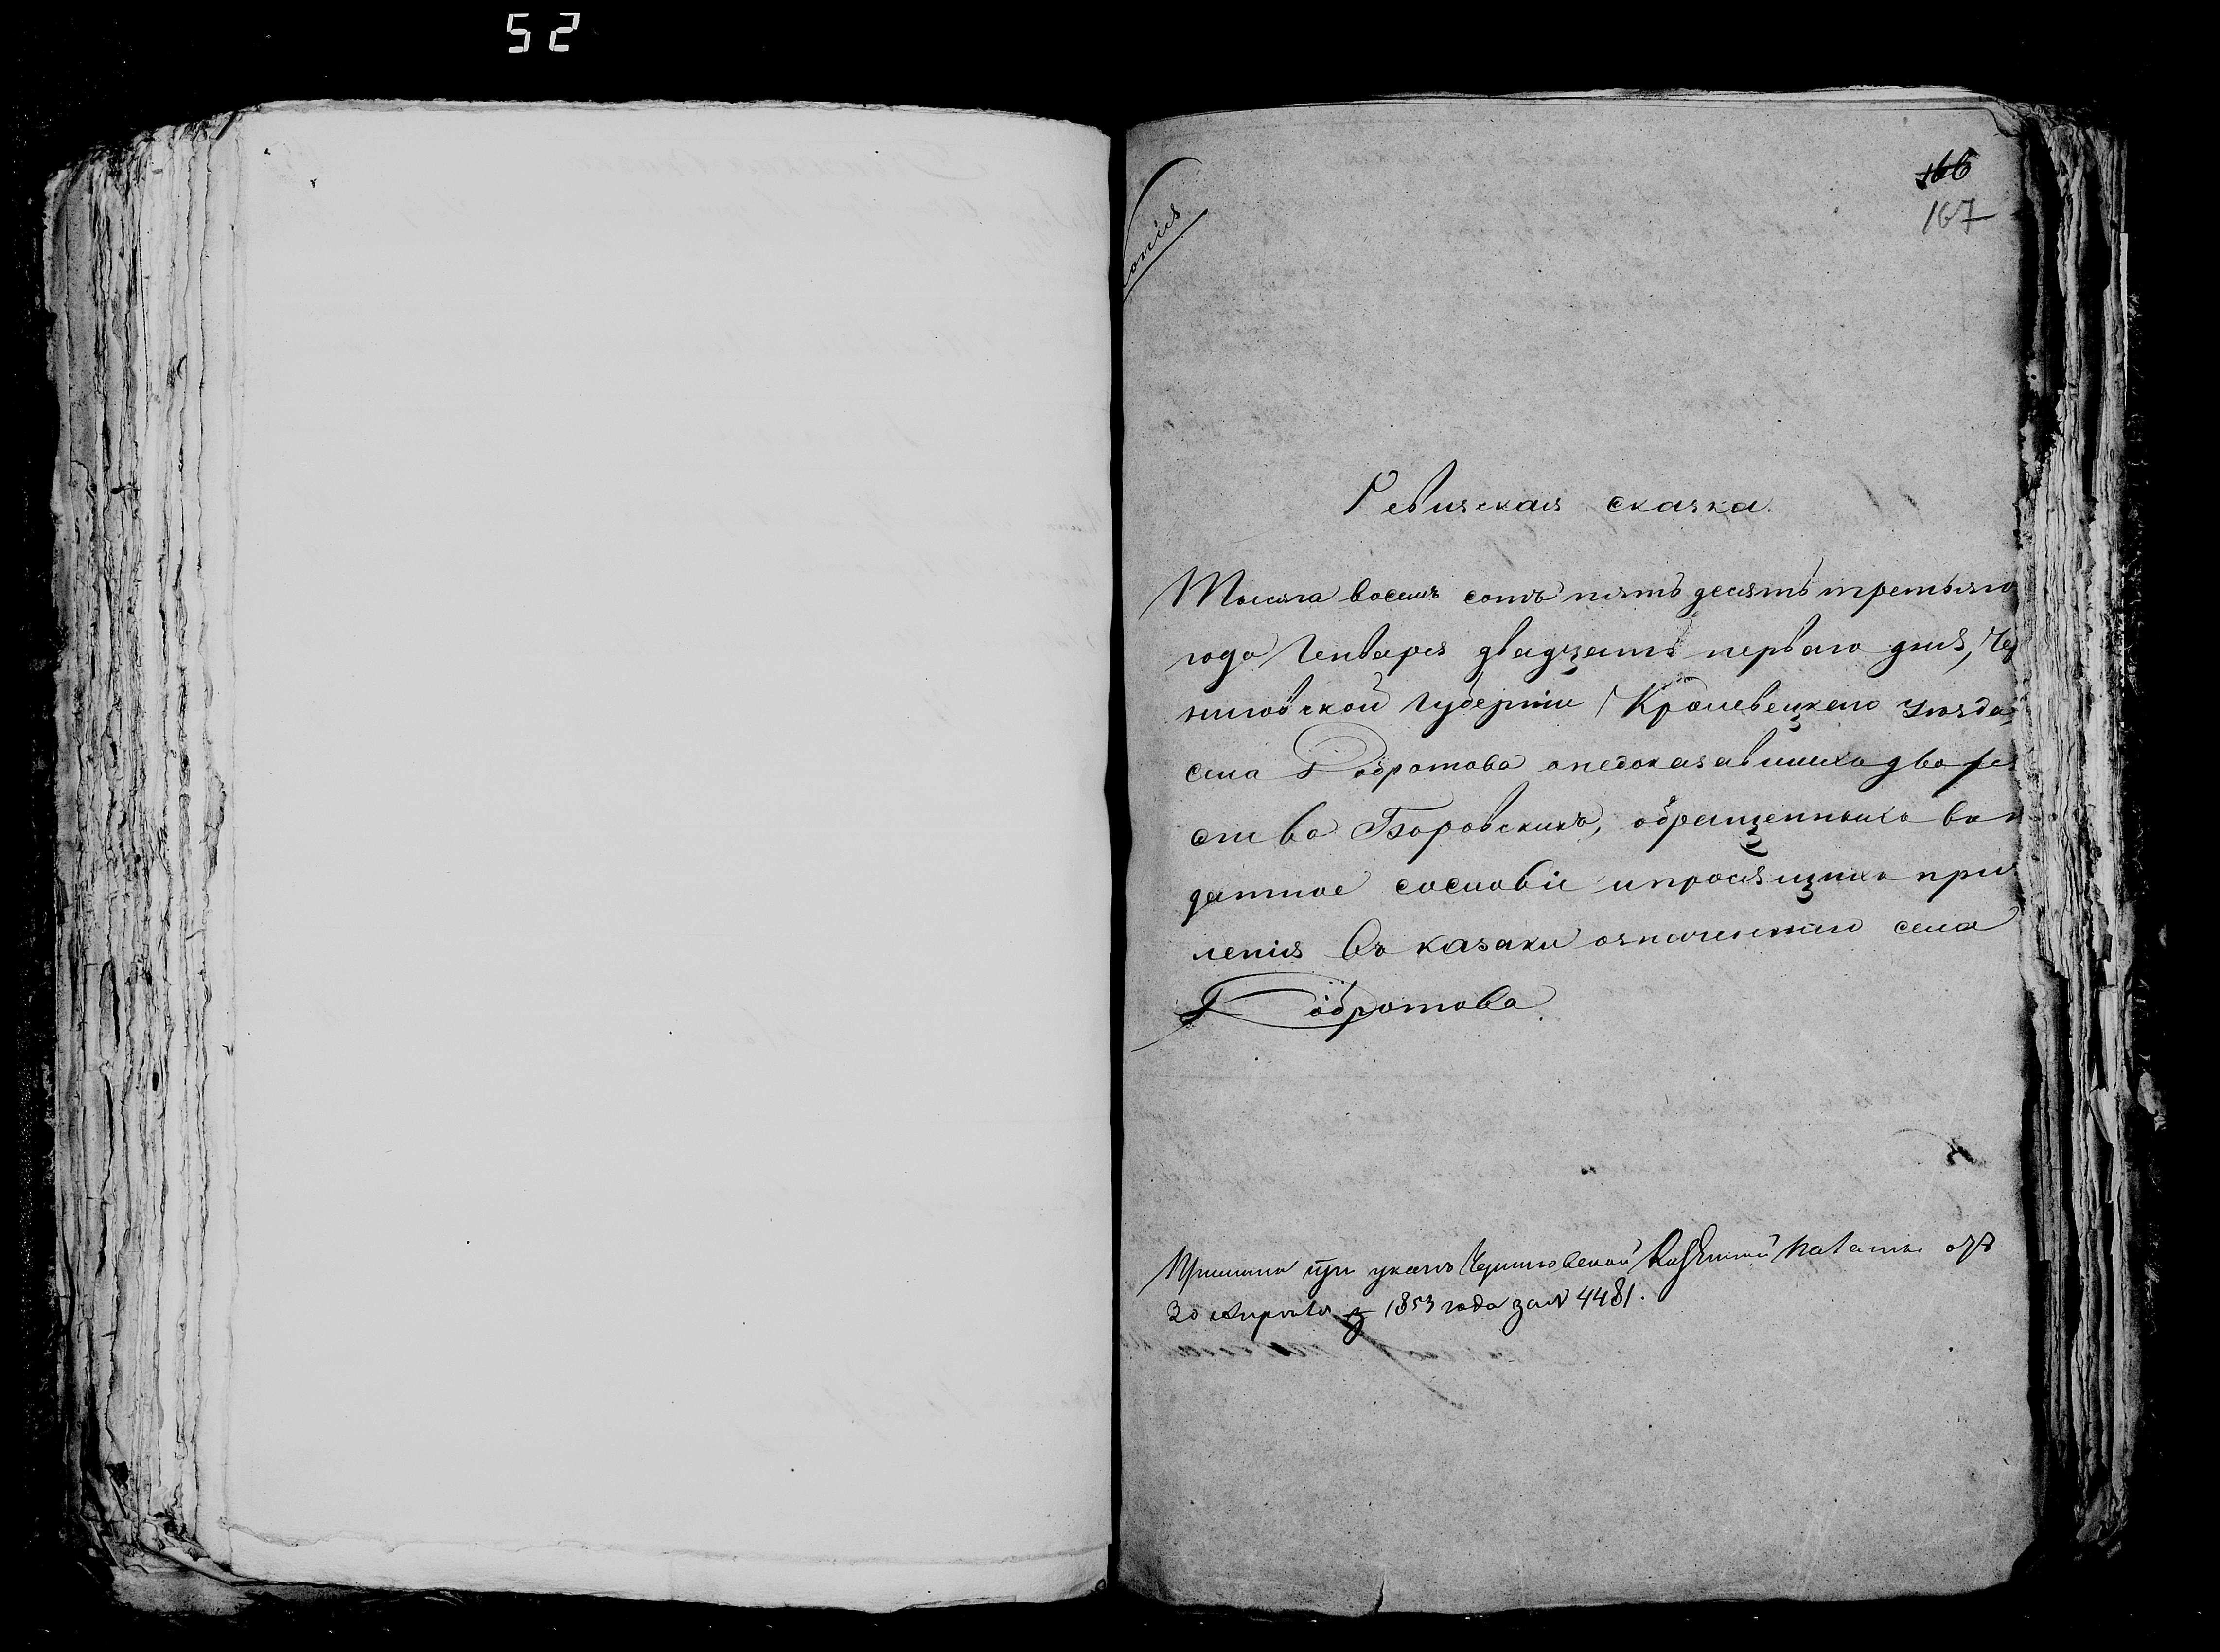 52
166
167
Копія
Ревизская сказка.
Тысяча восемь сотъ пять десятъ третьяго
года Генваря двадцать перваго дня, Чер
ниговской губерніи Кролевецкаго уѣзда,
села Добротова онедоказавшихъ дворян
ства Боровскихъ, обращенныхъ въ по
датное сословіе ипросящихъ при
ленія въ казаки означеннаго села
Добротова.
при указѣ Черниговской Казенной Палаты отъ
30 Апрѣля 1853 года за № 4481.